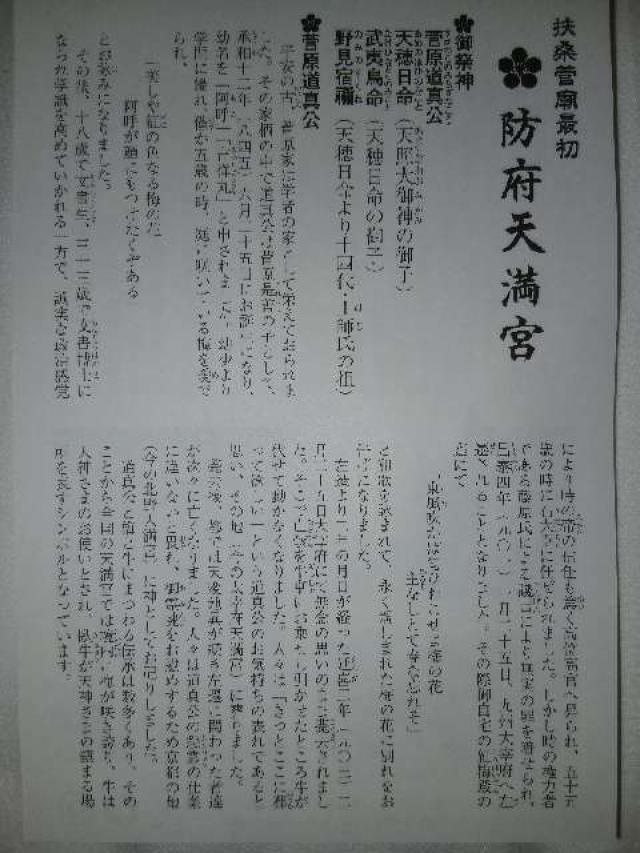 扶桑菅廟最初
防府天満宮
御祭神
菅原道真公
天穂日命（天照大御神の御子）
武夷鳥命（天穂日命の御子）
野見宿禰（天穂日命より十四代・土師氏の祖）
菅原道真公
平安の古、菅原家は学者の家として栄えておられま
した。その家柄の中で道真公は菅原是善の子として、
承和十二年（八四五）六月二十五日にお誕生になり、
幼名を「阿呼」「吉祥丸」と申されました。幼少より
学問に優れ、僅か五歳の時、庭に咲いている梅を愛で
られ、
「美しや紅の色なる梅の花
阿呼が顔にもつけたくぞある
とお詠みになりました。
その後、十八歳で文章生、三十三歳で文章博士に
なられ学識を高めていかれる一方で、誠実な政治感覚
により時の帝の信任も篤く高位高官へ昇られ、五十五
歳の時に右大臣に任ぜられました。しかし時の権力者
である藤原氏による讒言により無実の罪を着せられ、
昌泰四年（九〇一）一月二十五日、九州大宰府へ左
遷されることとなりました。その際御自宅の紅梅殿の
庭にて
「東風吹かば匂ひおこせよ梅の花
主なしとて春な忘れそ」
と和歌を詠まれて、永く愛しまれた梅の花に別れをお
告げになりました。
左遷より二年の月日が経った延喜三年（九〇三）二
月二十五日大宰府にて無念の思いのまま薨去されまし
た。そこで亡骸を牛車にお乗せし引かせたところ牛が
伏せて動かなくなりました。人々は「きっとここに葬
って欲しい」という道真公のお気持ちの表れであると
思い、その地（その太宰府天満宮）に葬りました。
薨去後、都では天変地異が続き左遷に関わった者達
が次々に亡くなりました。人々は道真公の怨霊の仕業
に違いないと畏れ、御霊魂をお慰めするため京都の地
（今の北野天満宮）に神としてお祀りしました。
道真公と梅と牛にまつわる伝承は数多くあり、その
ことから全国の天満宮では境内に梅が咲き誇り、牛は
天神さまのお使いとされ、臥牛が天神さまの鎮まる場
所を表すシンボルとなっています。